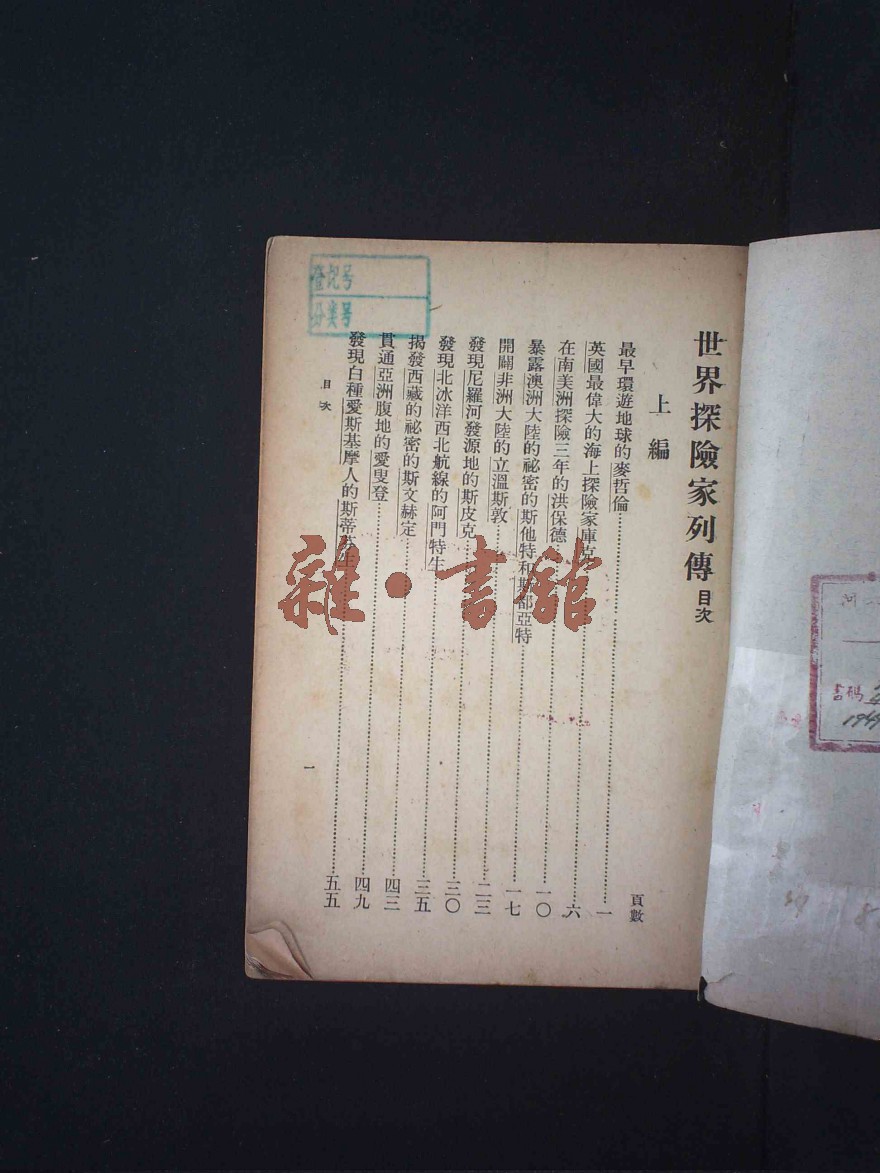 世界探險家列傳目次
上編
頁數
最早環遊地球的麥哲倫……一
英國最偉大的海上探險家庫克……六
在南美洲探險三年的洪保德……一〇
暴露澳洲大陸的祕密的斯他特和斯都亞特……一七
開闢非洲大陸的立溫斯敦……二三
發現尼羅河發源地的斯皮克……三〇
發現北冰洋西北航線的阿門特生……三五
揭發西藏的祕密的斯文赫定……四三
貫通亞洲腹地的愛叟登……四九
發現白種愛斯基摩人的斯蒂芬生……五五
目次
一
登记号
分类号
雜·書館
書碼